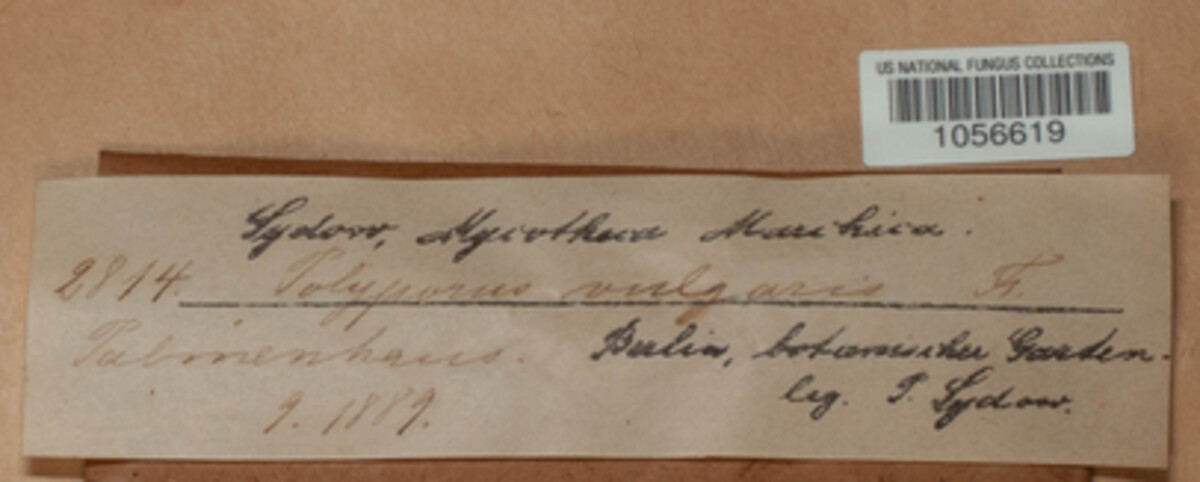 US NATIONAL FUNGUS COLLECTIONS
1056619
Sydow, Mycotheca Marchica.
2814. Polyporus vulgaris Fr.
Palmenhaus. Berlin, botanischer Garten.
9. 1889. leg. P. Sydow.